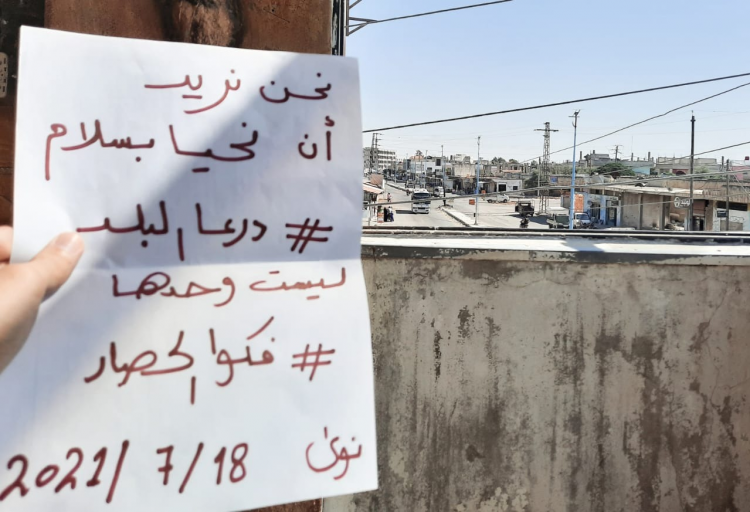 نحن نريد
أن نحيا بسلام
# درعا البلد
ليست وحدها
# فكوا الحصار
نوى 18/7/2021